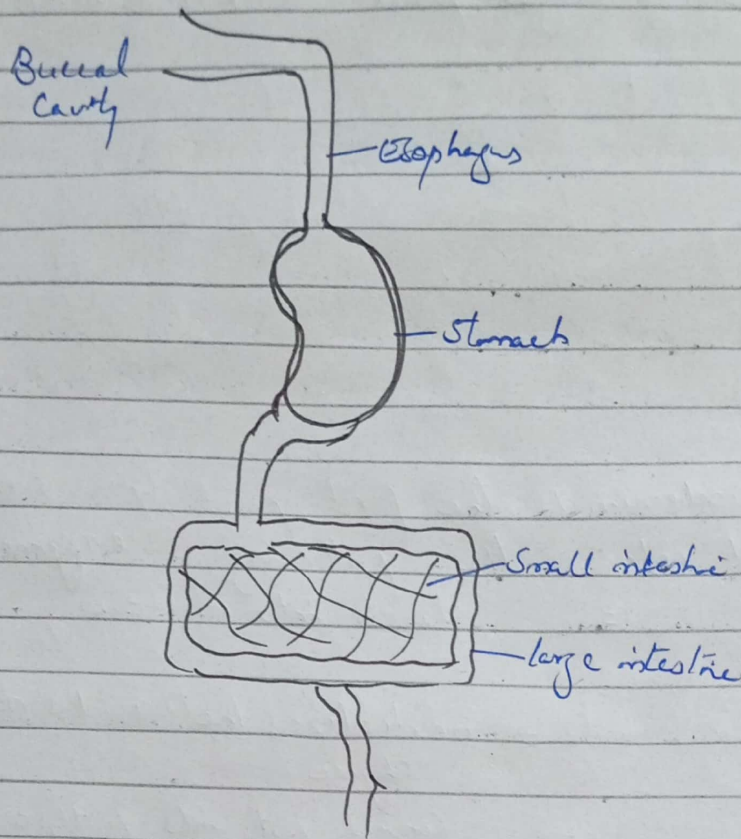 Buccal
Cavity
Esophagus
Stomach
Small intestine
large intestine